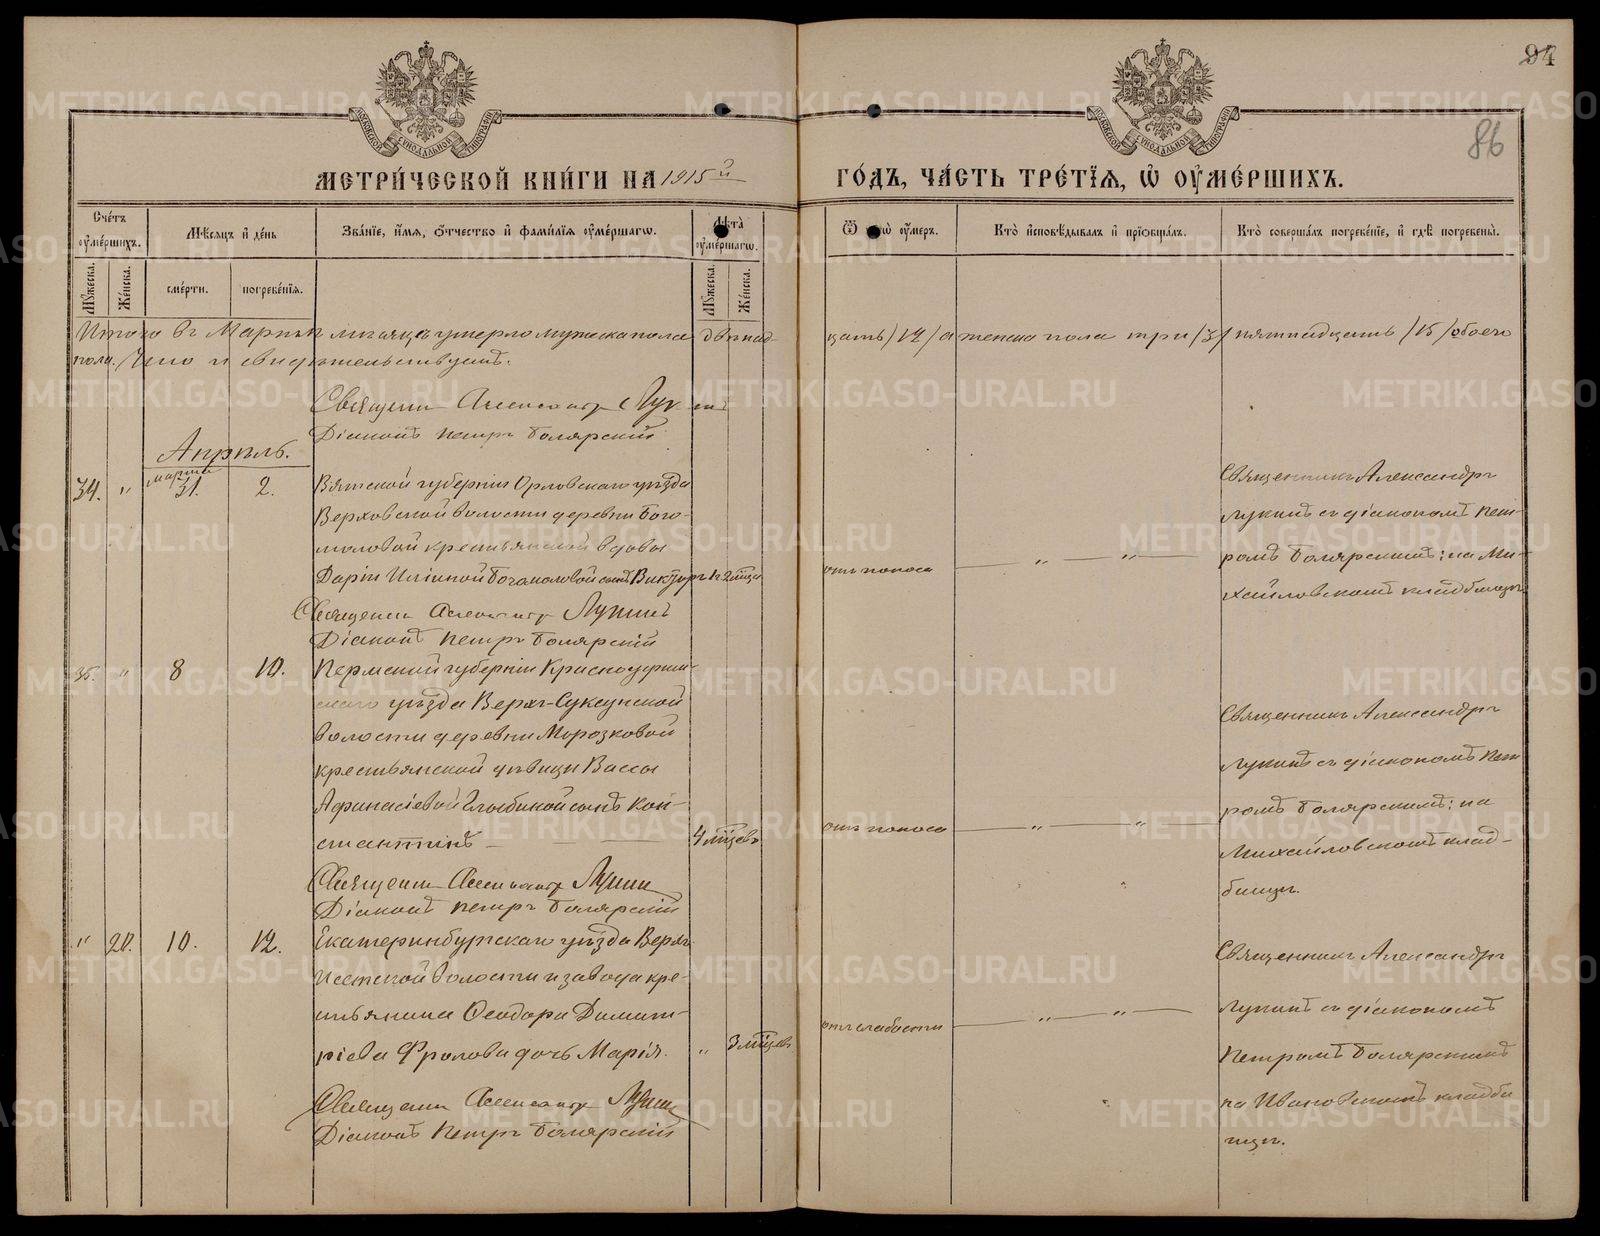 94
86
МЕТРИ́ЧЕСКОЙ КНИ́ГИ НА 1915й
ГО́ДЪ, ЧА́СТЬ ТРЕ́ТІѦ, Ѡ ОУ҆МЕ́РШИХЪ.
Сче́тъ оумершихъ.
Мѣсяцъ и день
Зва́ніе, и́мѧ, о́тчество и фами́лїѧ оуме́ршагѡ.
Лѣта̀ оуме́ршагѡ.
Ѿ чегѡ оумеръ.
Кто̀ исповѣ́дывалъ и прїобща́лъ.
Кто̀ соверша́лъ погребе́нїе, и гдѣ̀ погребены̀.
Мꙋжеска.
Же́нска.
сме́рти.
погребе́нїѧ.
Мꙋжеска.
Же́нска.
Итого въ Мартѣ мѣсяцѣ умерло мужеска пола двѣнад-
цать /12/ а женска пола три /3/ пятнадцать /15/ обоего
пола. Что и свидѣтельствуемъ.
Священн. Александръ Лукинъ
Діаконъ Петръ Болярскій
Апрѣль.
34. " марта 31. 2.
Вятской губерніи Орловскаго уѣзда
Верховской волости деревни Бого-
моловой крестьянской вдовы
Даріи Иліиной Богомоловой сынъ Викторъ 1 г. 2 мѣсца
отъ поноса
— " — " —
Священникъ Александръ
Лукинъ съ діакономъ Пет-
ромъ Болярскимъ: на Ми-
хайловскомъ кладбищѣ
Священн. Александръ Лукинъ
Діаконъ Петръ Болярскій
35. " 8 10.
Пермской губерніи Красноуфим-
скаго уѣзда Верхъ-Суксунской
волости деревни Морозковой
крестьянской дѣвицы Вассы
Афанасіевой Глыбиной сынъ Кон-
стантинъ — 4 мѣсцевъ
отъ поноса
— " — " —
Священникъ Александръ
Лукинъ съ діакономъ Пет
ромъ Болярскимъ: на
Михайловскомъ клад-
бищѣ.
Священн. Александръ Лукинъ
Діаконъ Петръ Болярскій
" 20. 10. 12.
Екатеринбургскаго уѣзда Верхъ
Исетской волости и завода кре-
стьянина Ѳеодора Димит-
ріева Фролова дочь Марія. " 3 мѣсцевъ
отъ слабости
— " — " —
Священникъ Александръ
Лукинъ съ діакономъ
Петромъ Болярскимъ
на Ивановскомъ кладби
щѣ.
Священн. Александръ Лукинъ
Діаконъ Петръ Болярскій
METRIKI.GASO-URAL.RU